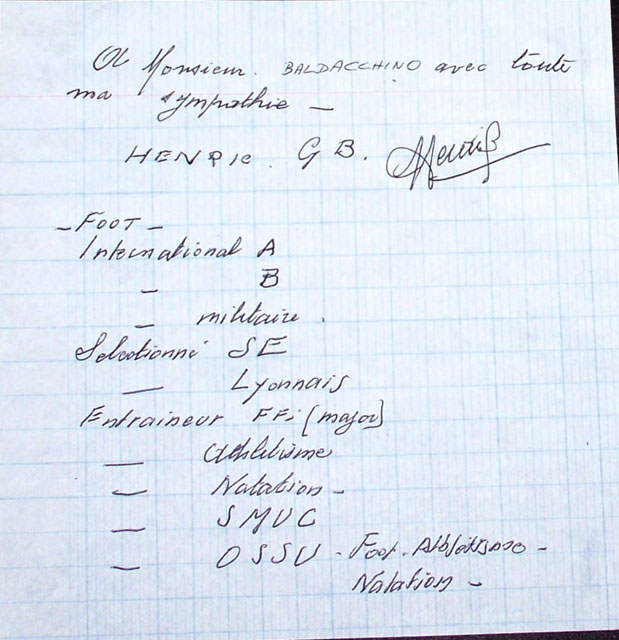 A Monsieur. BALDACCHINO avec toute
ma sympathie —
HENRIC. G B.
- FOOT -
International A
- B
- militaire.
Selectionné SE
— Lyonnais
Entraineur FFi [major]
— Athlétisme
— Natation -
— SMUC
— OSSU - Foot. Athlétisme -
Natation -